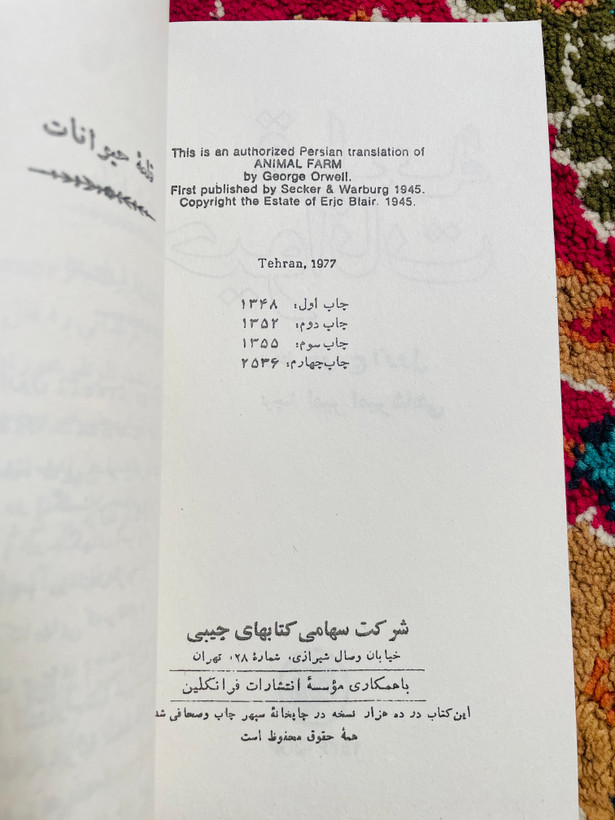 This is an authorized Persian translation of
ANIMAL FARM
by George Orwell.
First published by Secker & Warburg 1945.
Copyright the Estate of Eric Blair. 1945.
Tehran, 1977
چاپ اول: ۱۳۴۸
چاپ دوم: ۱۳۵۲
چاپ سوم: ۱۳۵۵
چاپ چهارم: ۲۵۳۶
شرکت سهامی کتابهای جیبی
خیابان وصال شیرازی، شمارهٔ ۲۸، تهران
با همکاری مؤسسهٔ انتشارات فرانکلین
این کتاب در ده هزار نسخه در چاپخانهٔ سپهر چاپ و صحافی شد
همهٔ حقوق محفوظ است
حیوانات